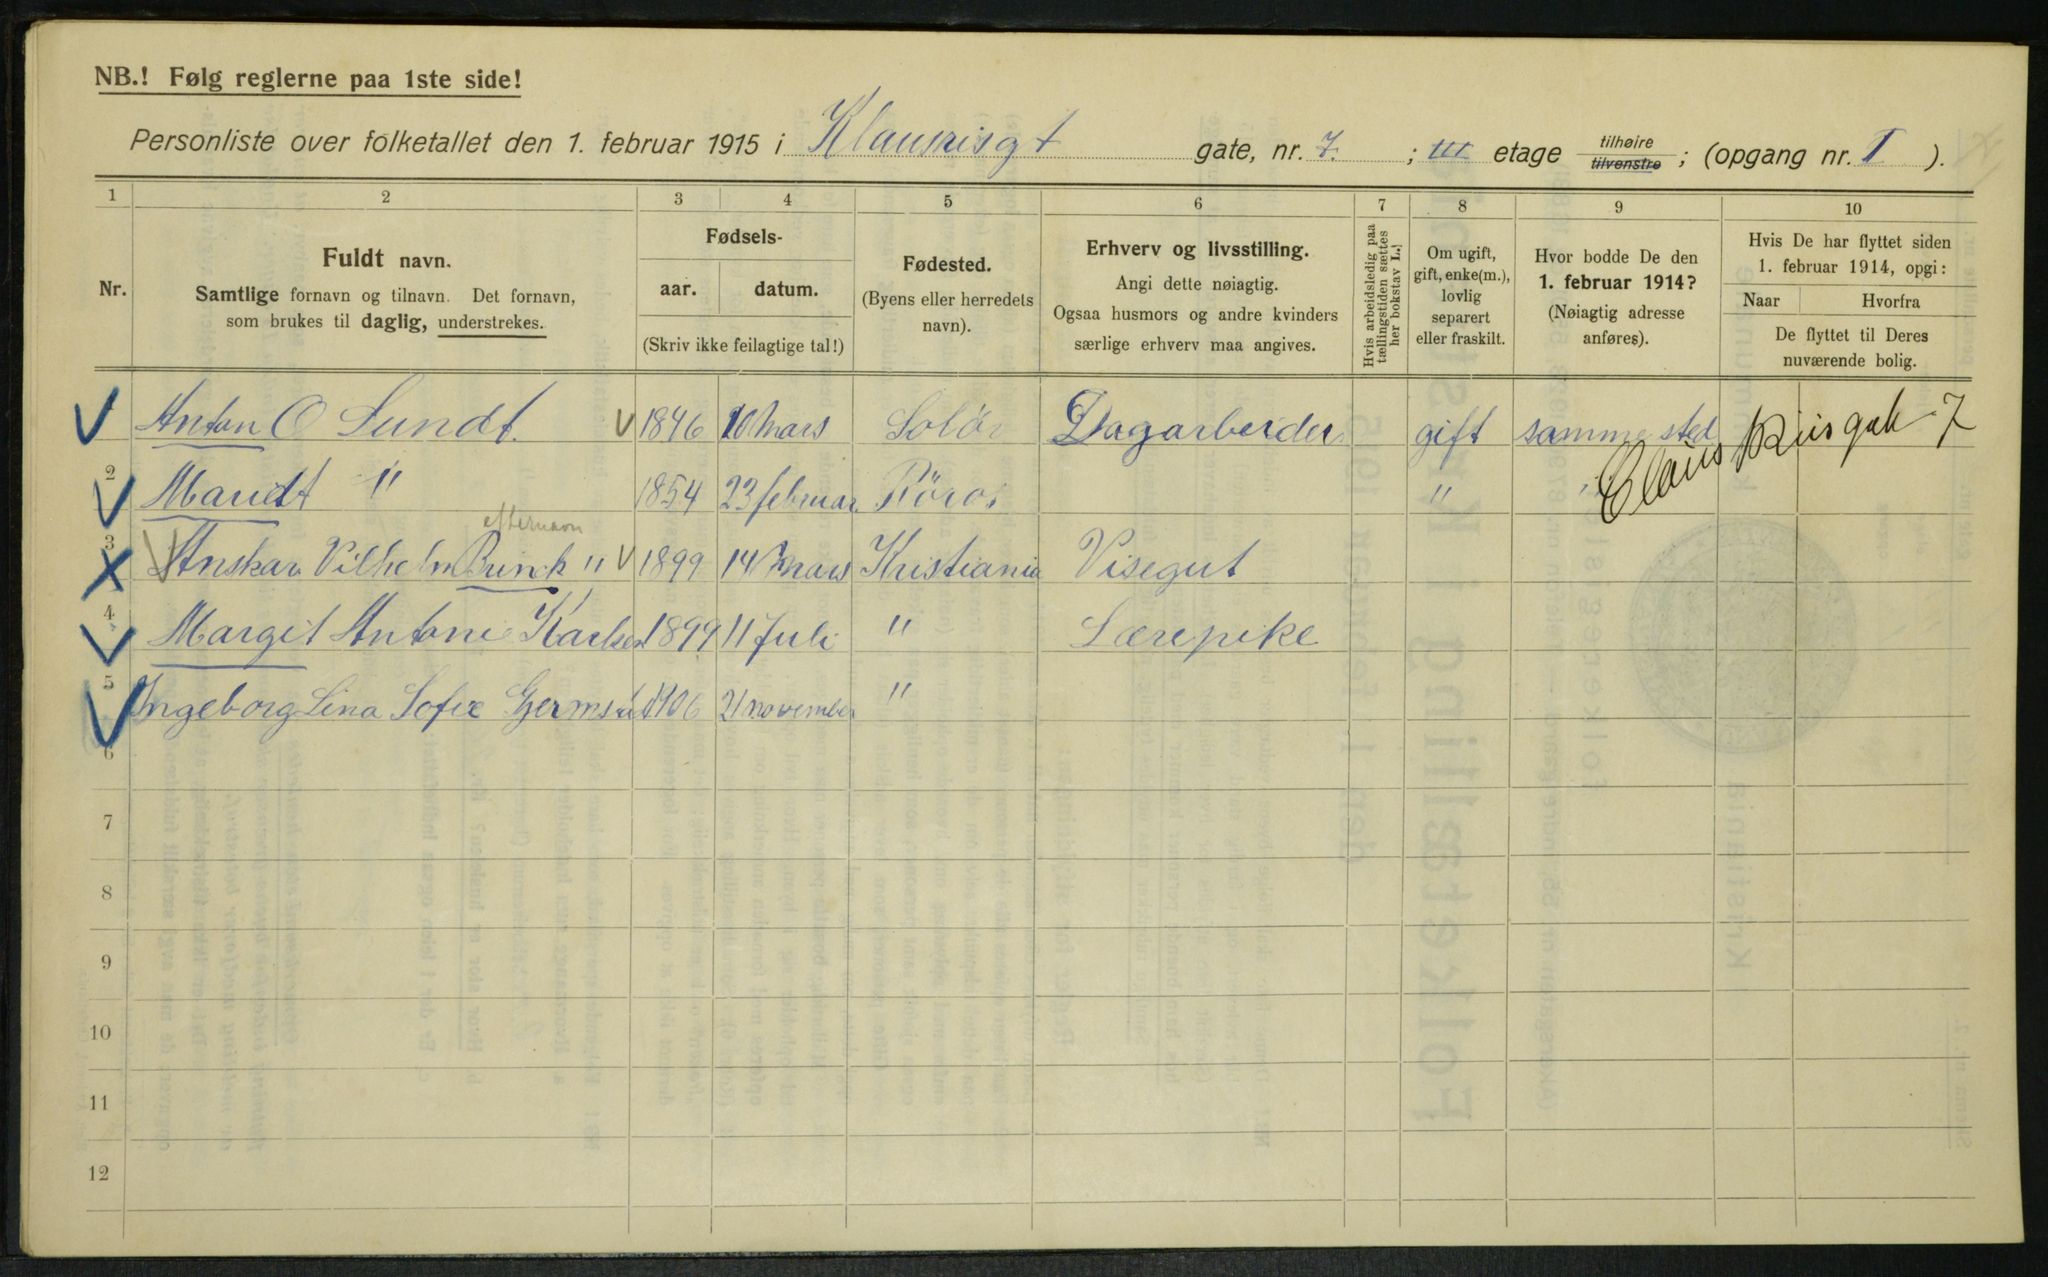 NB.! Følg reglerne paa 1ste side!
Personliste over folketallet den 1. februar 1915 i Klausrisgt gate, nr. 7. ; III etage tilhøire tilvenstre ; (opgang nr. I ).
1 2 3 4 5 6 7 8 9 10
Nr.
Fuldt navn.
Samtlige fornavn og tilnavn. Det fornavn,
som brukes til daglig, understrekes.
Fødsels-
aar. datum.
(Skriv ikke feilagtige tal!)
Fødested.
(Byens eller herredets
navn).
Erhverv og livsstilling.
Angi dette nøiagtig.
Ogsaa husmors og andre kvinders
særlige erhverv maa angives.
Hvis arbeidsledig paa
tællingstiden sættes
her bokstav L.!
Om ugift,
gift, enke(m.),
lovlig
separert
eller fraskilt.
Hvor bodde De den
1. februar 1914?
(Nøiagtig adresse
anføres).
Hvis De har flyttet siden
1. februar 1914, opgi:
Naar Hvorfra
De flyttet til Deres
nuværende bolig.
Anton O Sundt. 1846 10 Mars Solör Dagarbeider gift samme sted
Claus Riisgate 7
2 Marit " 1854 23 februar Röros "
efternavn
3 Anskar Vilhelm Brinck " 1899 14 Mars Kristiania Visegut
4 Margit Antonie Karlsen 1899 11 Juli " Lærepike
5 Ingeborg Lina Sofie 1906 21 november "
6
7
8
9
10
11
12